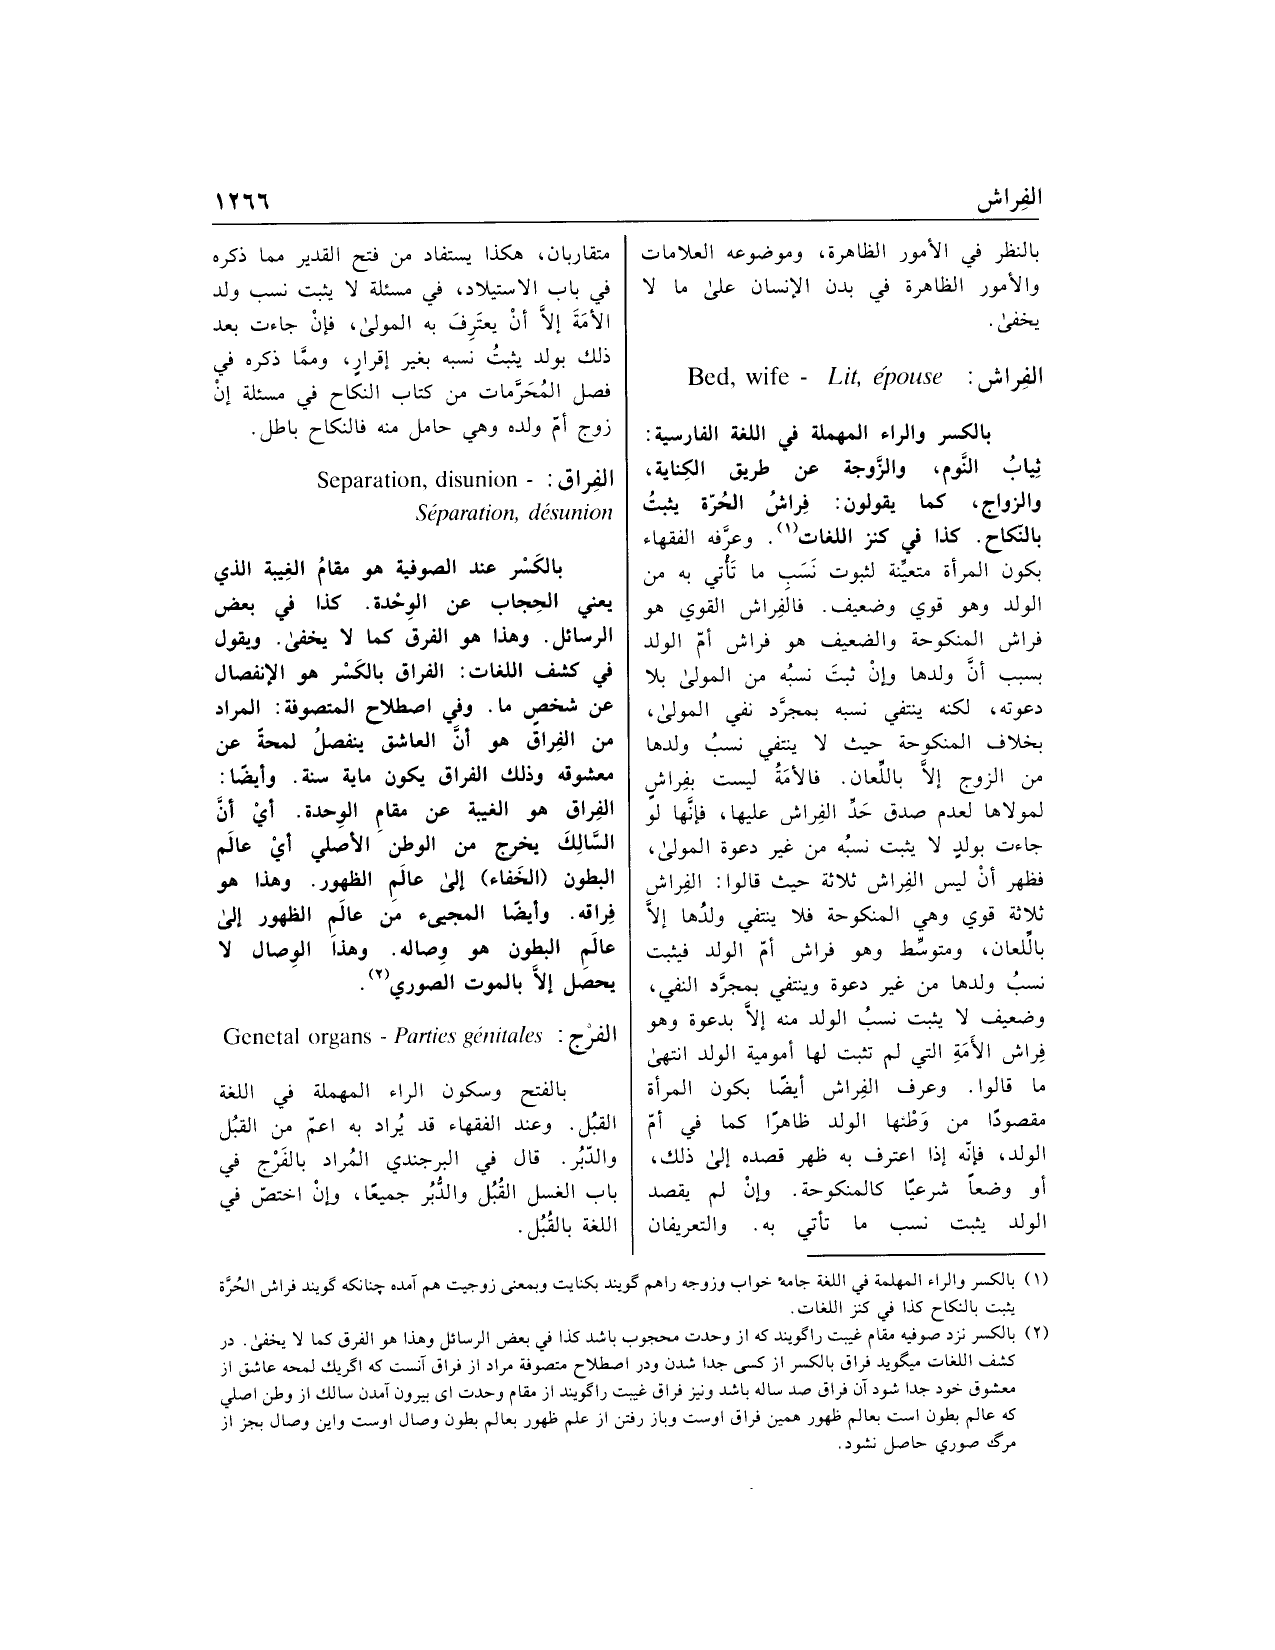 الفِراش
١٢٦٦
بالنظر في الأمور الظاهرة، وموضوعه العلامات
والأمور الظاهرة في بدن الإنسان علىٰ ما لا
يخفىٰ.
الفِراش: Bed, wife - Lit, épouse
بالكسر والراء المهملة في اللغة الفارسية:
ثِيابُ النَّوم، والزَّوجة عن طريق الكِناية،
والزواج، كما يقولون: فِراشُ الحُرّة يثبتُ
بالنّكاح. كذا في كنز اللغات(١). وعرَّفه الفقهاء
بكون المرأة متعيِّنة لثبوت نَسَبِ ما تَأْتي به من
الولد وهو قوي وضعيف. فالفِراش القوي هو
فراش المنكوحة والضعيف هو فراش أمّ الولد
بسبب أنَّ ولدها وإنْ ثبتَ نسبُه من المولىٰ بلا
دعوته، لكنه ينتفي نسبه بمجرَّد نفي المولىٰ،
بخلاف المنكوحة حيث لا ينتفي نسبُ ولدها
من الزوج إلاَّ باللِّعان. فالأمَةُ ليست بفِراشٍ
لمولاها لعدم صدق حَدِّ الفِراش عليها، فإنَّها لو
جاءت بولدٍ لا يثبت نسبُه من غير دعوة المولىٰ،
فظهر أنْ ليس الفِراش ثلاثة حيث قالوا: الفِراش
ثلاثة قوي وهي المنكوحة فلا ينتفي ولدُها إلاَّ
باللِّعان، ومتوسِّط وهو فراش أمّ الولد فيثبت
نسبُ ولدها من غير دعوة وينتفي بمجرَّد النفي،
وضعيف لا يثبت نسبُ الولد منه إلاَّ بدعوة وهو
فِراش الأمَةِ التي لم تثبت لها أمومية الولد انتهىٰ
ما قالوا. وعرف الفِراش أيضًا بكون المرأة
مقصودًا من وَطْئها الولد ظاهرًا كما في أمّ
الولد، فإنّه إذا اعترف به ظهر قصده إلىٰ ذلك،
أو وضعاً شرعيًا كالمنكوحة. وإنْ لم يقصد
الولد يثبت نسب ما تأتي به. والتعريفان
متقاربان، هكذا يستفاد من فتح القدير مما ذكره
في باب الاستيلاد، في مسئلة لا يثبت نسب ولد
الأمَةَ إلاَّ أنْ يعتَرِفَ به المولىٰ، فإنْ جاءت بعد
ذلك بولد يثبتُ نسبه بغير إقرارٍ، وممَّا ذكره في
فصل المُحَرَّمات من كتاب النكاح في مسئلة إنْ
زوج أمّ ولده وهي حامل منه فالنكاح باطل.
الفِراق: Separation, disunion -
Séparation, désunion
بالكَسْر عند الصوفية هو مقامُ الغِيبة الذي
يعني الحِجاب عن الوِحْدة. كذا في بعض
الرسائل. وهذا هو الفرق كما لا يخفىٰ. ويقول
في كشف اللغات: الفراق بالكَسْر هو الإنفصال
عن شخصٍ ما. وفي اصطلاح المتصوفة: المراد
من الفِراق هو أنَّ العاشق ينفصلُ لمحةً عن
معشوقه وذلك الفراق يكون ماية سنة. وأيضًا:
الفِراق هو الغيبة عن مقامِ الوِحدة. أيْ أنَّ
السَّالِكَ يخرج من الوطن الأصلي أيْ عالَم
البطون (الخَفاء) إلىٰ عالَمِ الظهور. وهذا هو
فِراقه. وأيضًا المجيىء من عالَمِ الظهور إلىٰ
عالَمِ البطون هو وِصاله. وهذا الوِصال لا
يحصل إلاَّ بالموت الصوري(٢).
الفرْج: Genetal organs - Parties génitales
بالفتح وسكون الراء المهملة في اللغة
القبُل. وعند الفقهاء قد يُراد به اعمّ من القبُل
والدّبُر. قال في البرجندي المُراد بالفَرْج في
باب الغسل القُبُل والدُّبُر جميعًا، وإنْ اختصّ في
اللغة بالقُبُل.
(١) بالكسر والراء المهلمة في اللغة جامه خواب وزوجه راهم گويند بكنايت وبمعنى زوجيت هم آمده چنانكه گويند فراش الحُرَّة
يثبت بالنكاح كذا في كنز اللغات.
(٢) بالكسر نزد صوفيه مقام غيبت راگويند كه از وحدت محجوب باشد كذا في بعض الرسائل وهذا هو الفرق كما لا يخفىٰ. در
كشف اللغات ميگويد فراق بالكسر از كسى جدا شدن ودر اصطلاح متصوفة مراد از فراق آنست كه اگريك لمحه عاشق از
معشوق خود جدا شود آن فراق صد ساله باشد ونيز فراق غيبت راگويند از مقام وحدت اى بيرون آمدن سالك از وطن اصلي
كه عالم بطون است بعالم ظهور همين فراق اوست وباز رفتن از علم ظهور بعالم بطون وصال اوست واين وصال بجز از
مرگ صوري حاصل نشود.